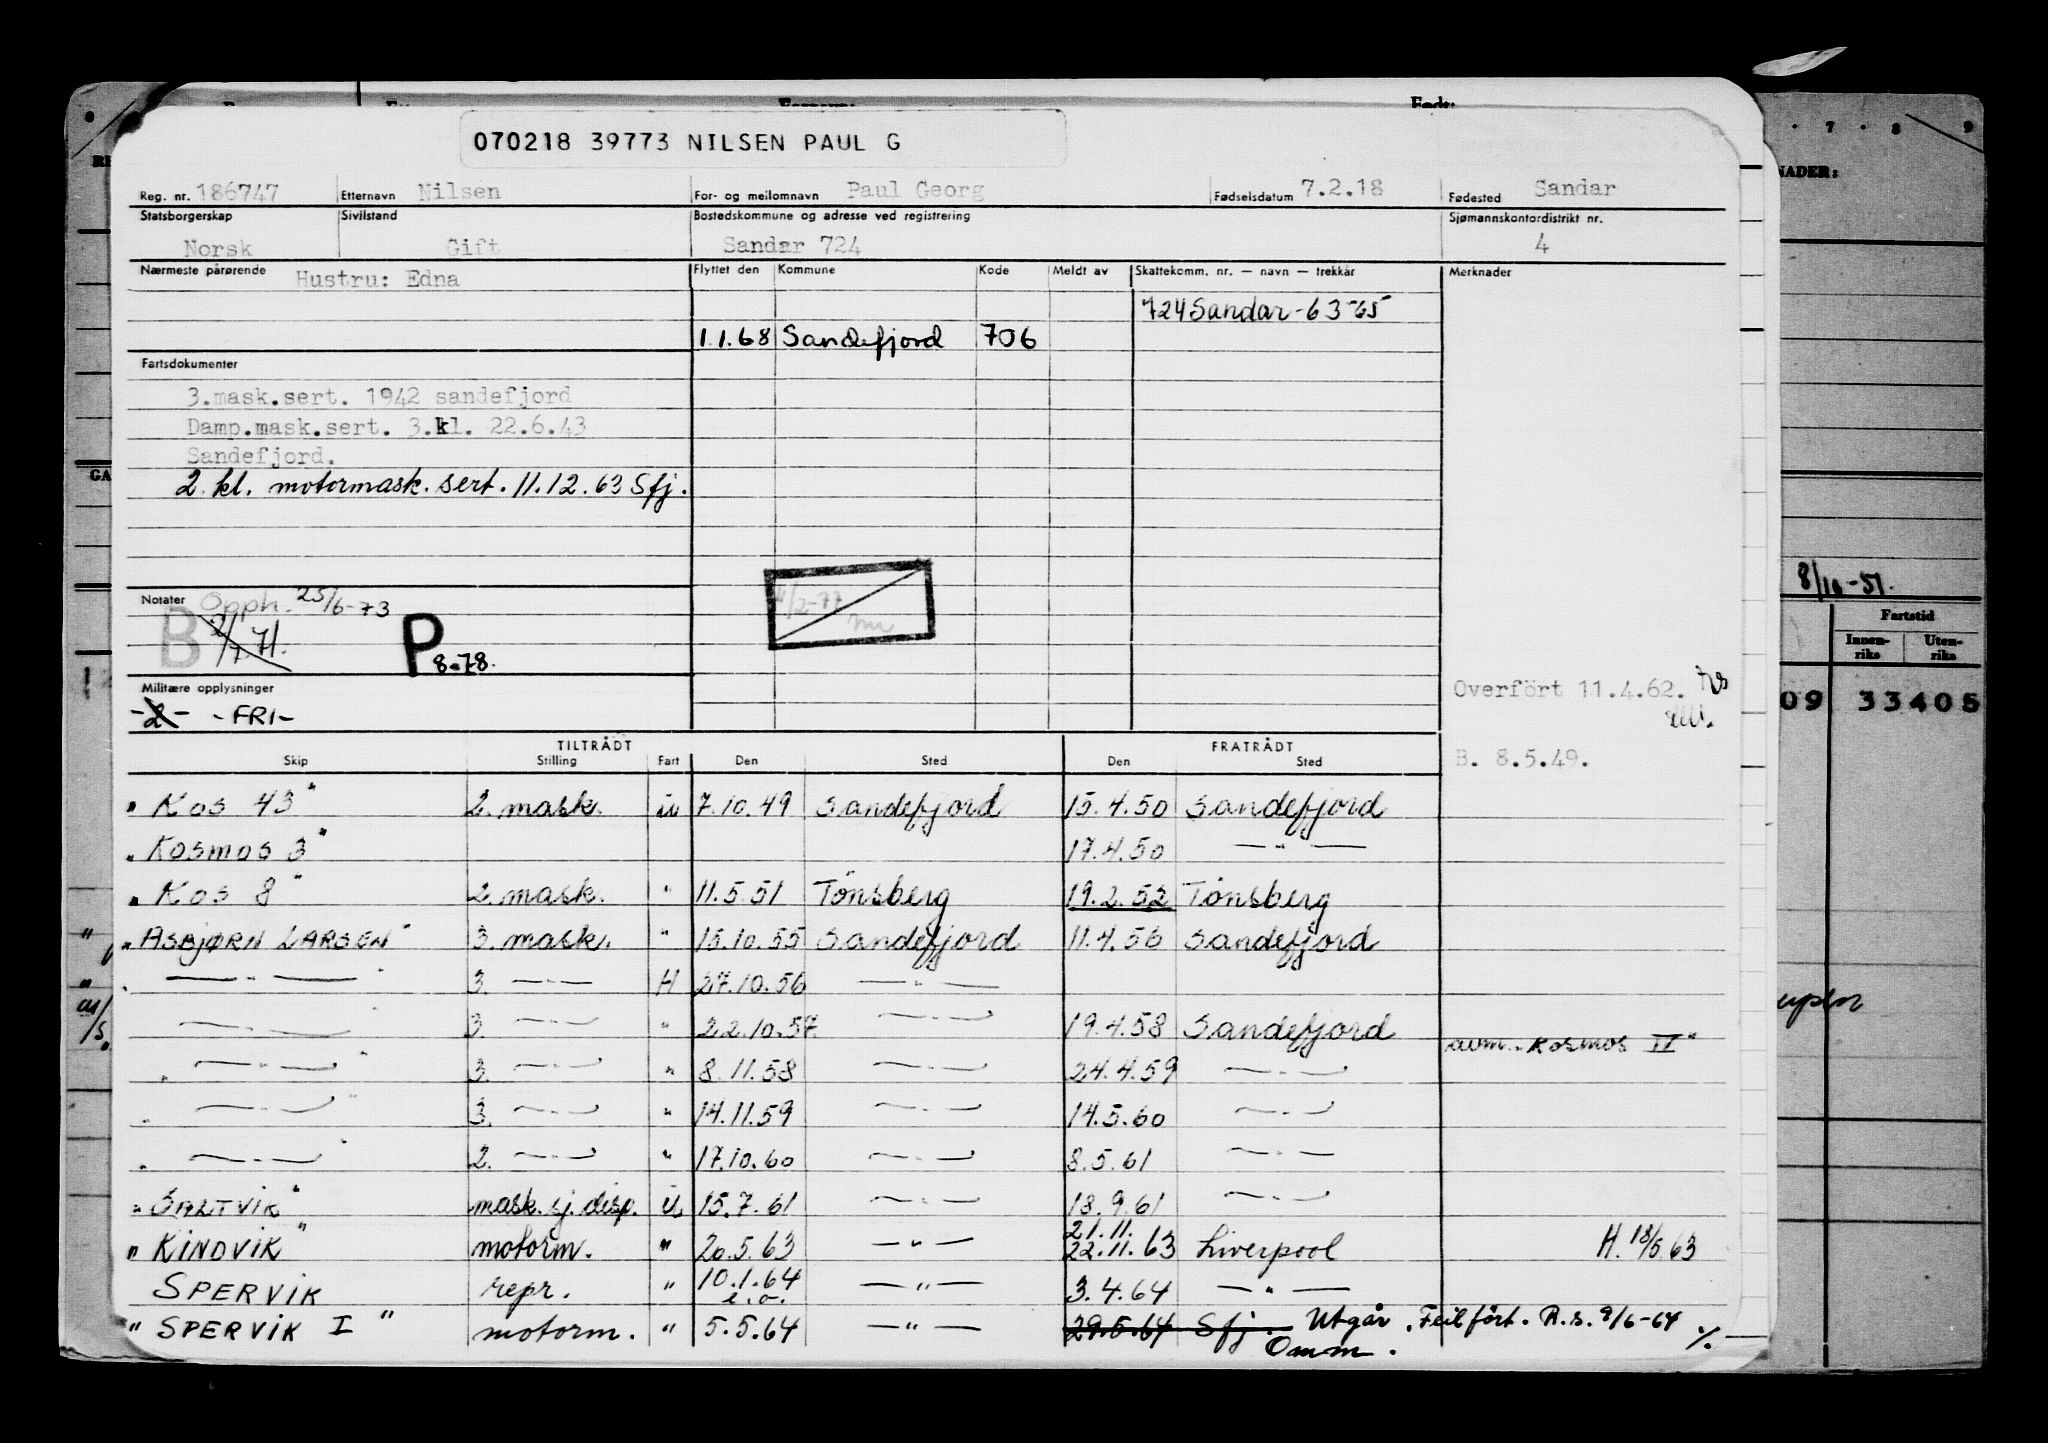 070218 39773 NILSEN PAUL G
Reg. nr. 186747 Etternavn Nilsen For- og mellomnavn Paul Georg Fødselsdatum 7.2.18 Fødested Sandar
Statsborgerskap Sivilstand Bostedskommune og adresse ved registrering Sjømannskontordistrikt nr.
Norsk Gift Sandar 724 4
Nærmeste pårørende Hustru: Edna Flyttet den Kommune Kode Meldt av Skattekomm. nr. — navn — trekkår Merknader
724 Sandar - 63-65
1.1.68 Sandefjord 706
Fartsdokumenter
3.mask.sert. 1942 sandefjord
Damp.mask.sert. 3.kl. 22.6.43
Sandefjord.
2. kl. motormask. sert. 11.12.63 Sfj.
Notater Opph. 25/6-73
B 2/7.71. P 8-78.
4/2-77
Militære opplysninger
-2- -FRI-
Overfört 11.4.62.
B. 8.5.49.
TILTRÅDT FRATRÅDT
Skip Stilling Fart Den Sted Den Sted
" Kos 43" 2. mask. u 7.10.49 Sandefjord 15.4.50 Sandefjord
" Kosmos 3" 17.4.50 — " —
" Kos 8" 2. mask. " 11.5.51 Tönsberg 19.2.52 Tönsberg
" ASBJØRN LARSEN" 3. mask. " 15.10.55 Sandefjord 11.4.56 Sandefjord
" — " — " 3. — " — H 27.10.56 — " —
— " — " 3. — " — " 22.10.57 — " — 19.4.58 Sandefjord
avm. "Kosmos IV"
" — " — " 3. — " — " 8.11.58 — " — 24.4.59 — " —
" — " — " 3. — " — " 14.11.59 — " — 14.5.60 — " —
" — " — " 2. — " — " 17.10.60 — " — 8.5.61 — " —
" SALTVIK" mask. sj. disp. U 15.7.61 — " — 18.9.61 — " —
" KINDVIK" motorm. " 20.5.63 — " — 21.11. 22.11.63 Liverpool H. 18/5.63
SPERVIK repr. " 10.1.64 — " — 3.4.64 — " —
e.o.
" SPERVIK I " motorm. " 5.5.64 — " — 29.5.64 Sfj. Utgår. Feilfört. R.s. 9/6-64 ./.
Omm.
NADER:
8/10-51.
Fartstid
Innen-riks Uten-riks
09 33405